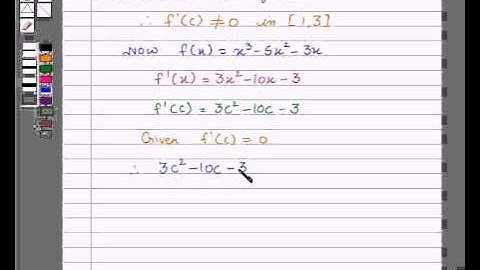 ∴ f'(c) ≠ 0 in [1,3]
Now f(x) = x³-5x²-3x
f'(x) = 3x²-10x-3
f'(c) = 3c²-10c-3
Given f'(c) = 0
∴ 3c²-10c-3